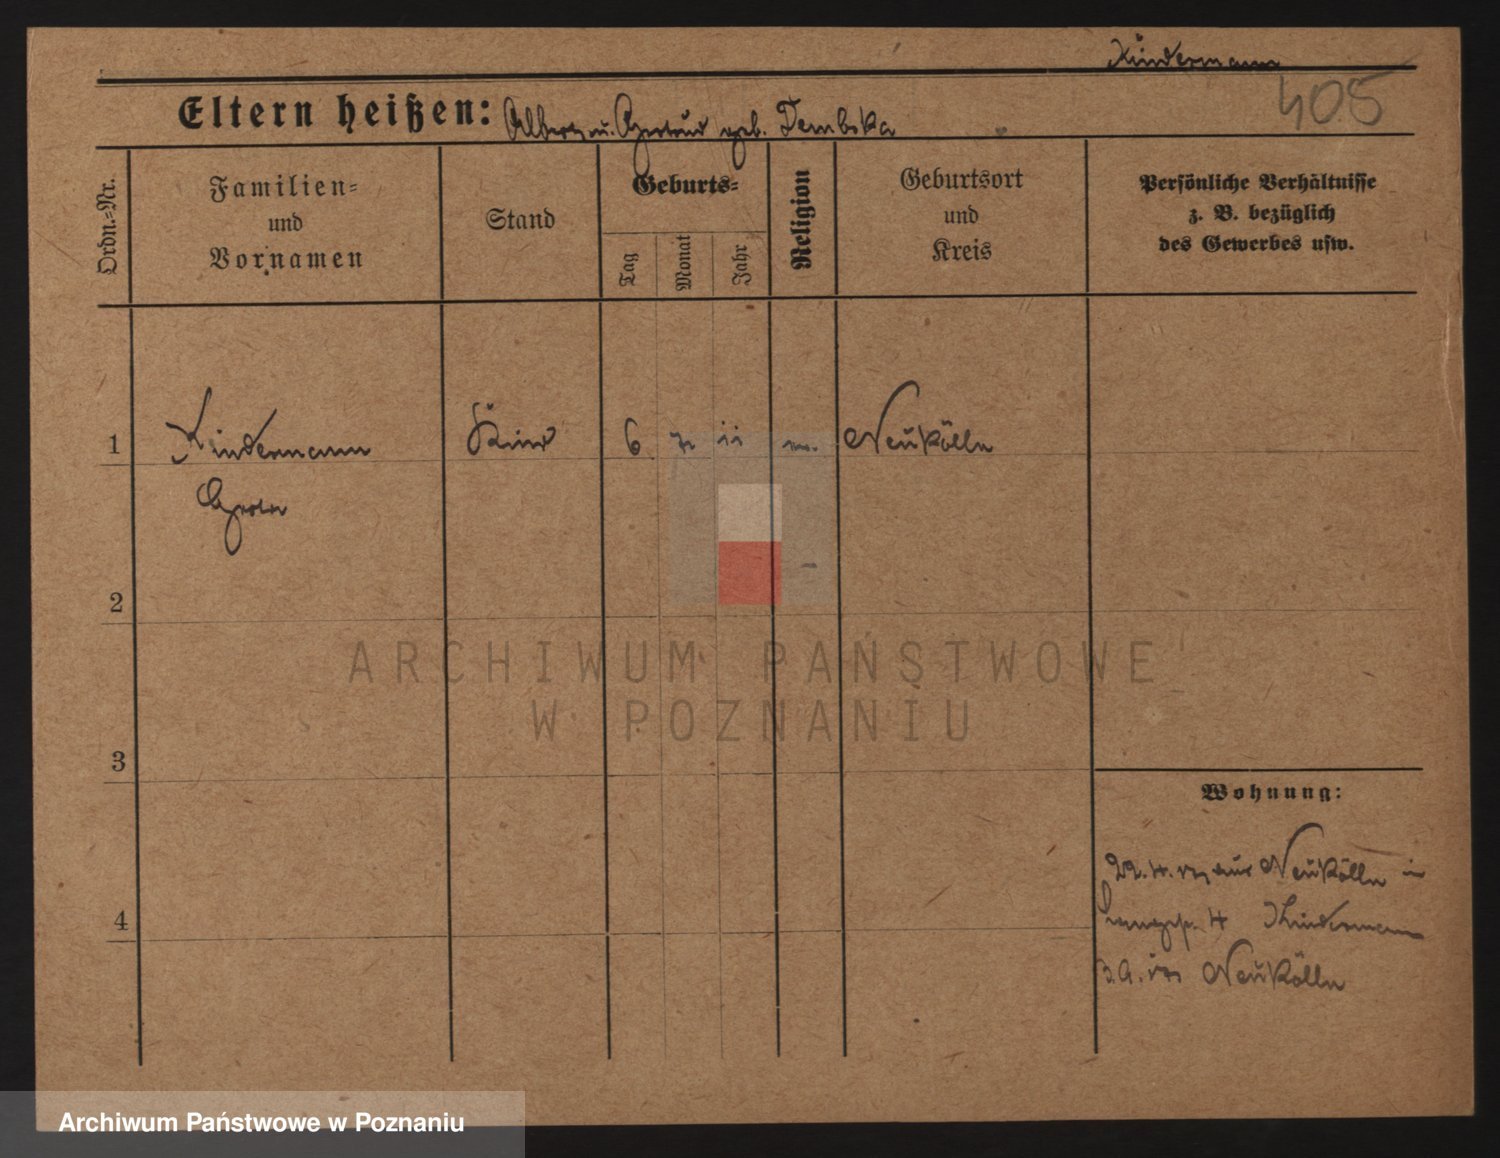 Kindermann
405
Eltern heißen: Albert u. Gertrud geb. Dembska
Ordn.=Nr.
Familien=
und
Vornamen
Stand
Geburts=
Tag
Monat
Jahr
Religion
Geburtsort
und
Kreis
Persönliche Verhältnisse
z. B. bezüglich
des Gewerbes usw.
1 Kindermann Kind 6 11 Neukölln
2
3
4
Wohnung:
22. 4. aus Neukölln in
4 Kindermann
Neukölln
ARCHIWUM PAŃSTWOWE
W POZNANIU
Archiwum Państwowe w Poznaniu